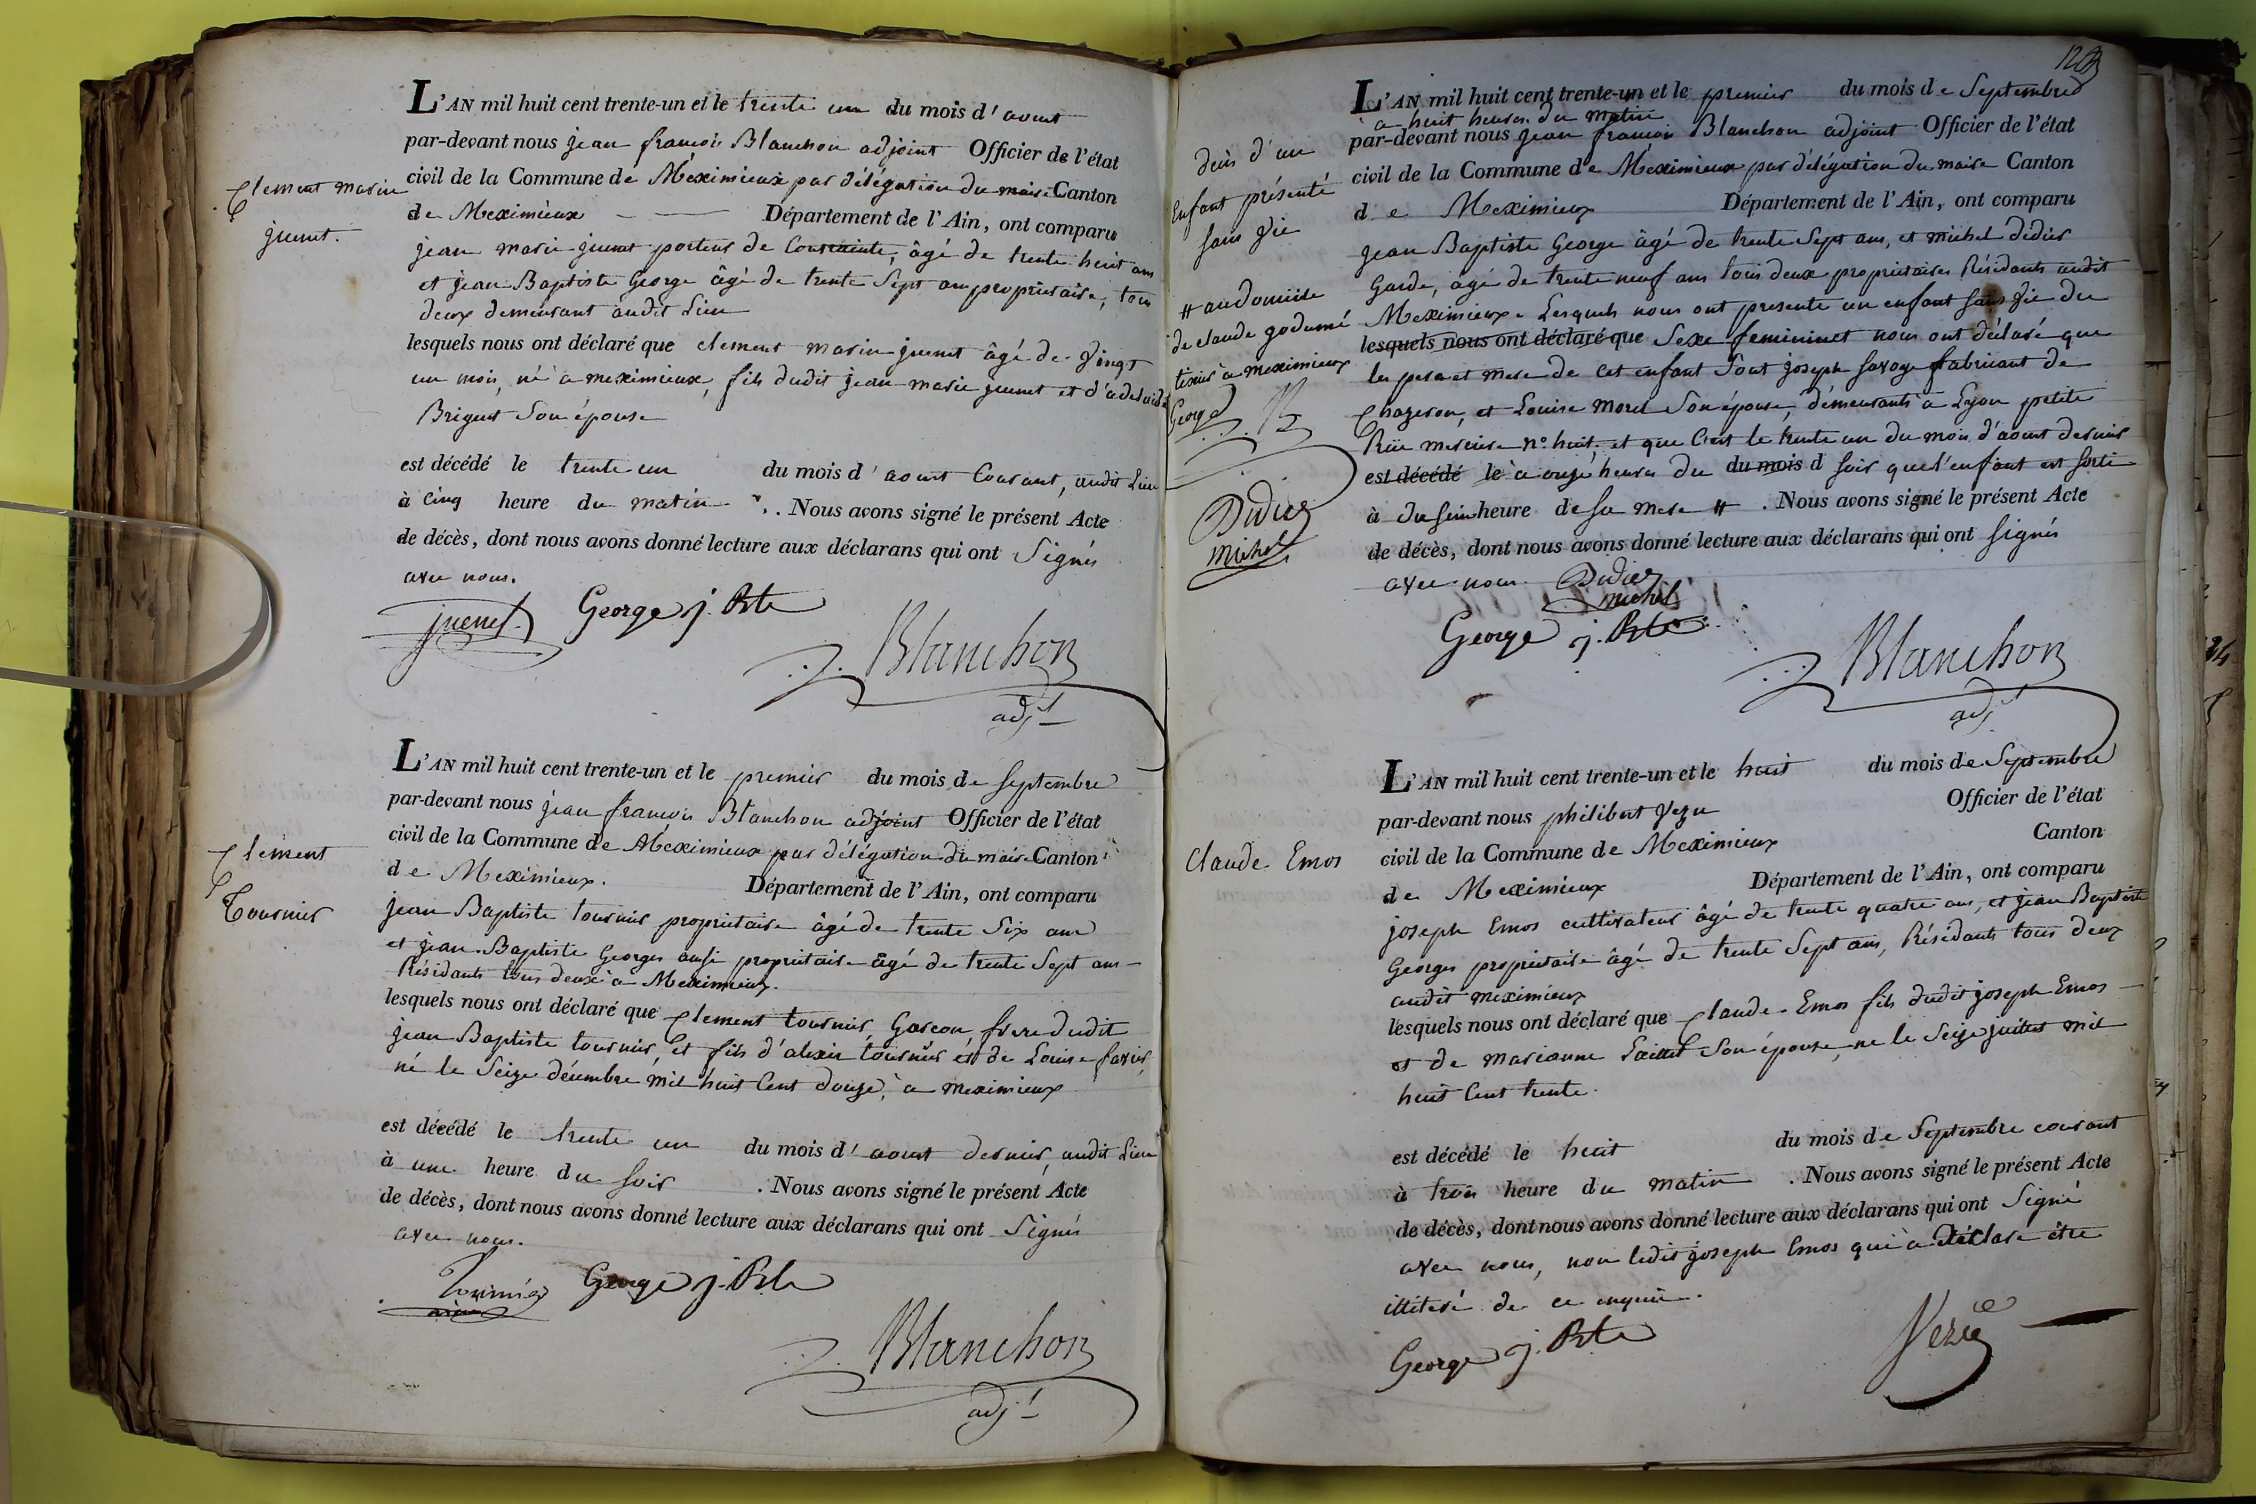 L'AN mil huit cent trente-un et le trente un du mois d'aout
par-devant nous jean françois Blanchon adjoint Officier de l'état
civil de la Commune de Meximieux par délégation du maire Canton
de Meximieux Département de l'Ain, ont comparu
jean marie juenet porteur de Contrainte, âgé de trente huit ans
et jean Baptiste George âgé de trente Sept ans propriétaire, tous
deux demeurant audit Lieu
lesquels nous ont déclaré que clement marin juenet âgé de vingt
un mois, né à meximieux, fils dudit jean marie juenet et d'adelaide
Son épouse
est décédé le trente un du mois d'aout Courant, audit Lieu
à cinq heure du matin . Nous avons signé le présent Acte
de décès, dont nous avons donné lecture aux déclarans qui ont Signés
avec nous.
Clement marin
juenet.
juenet George j. Bte
Blanchon
adjt
L'AN mil huit cent trente-un et le premier du mois de septembre
par-devant nous jean françois Blanchon adjoint Officier de l'état
civil de la Commune de Meximieux par délégation du maire Canton
de Meximieux. Département de l'Ain, ont comparu
jean Baptiste tournier propriétaire âgé de trente Six ans
et jean Baptiste Georges aussi propriétaire âgé de trente Sept ans
Résidants tous deux à Meximieux.
lesquels nous ont déclaré que Clement tournier, Garçon, frere dudit
jean Baptiste tournier, et fils d'alexis tournier et de Louise favier,
né le Seize décembre mil huit Cent douze, à meximieux
est décédé le trente un du mois d'aout dernier, audit Lieu
à une heure du soir . Nous avons signé le présent Acte
de décès, dont nous avons donné lecture aux déclarans qui ont Signés
avec nous.
Clement
Tournier
Tournier George j. Bte
Blanchon
adjt
L'AN mil huit cent trente-un et le premier du mois de Septembre
a huit heures du matin
par-devant nous jean françois Blanchon adjoint Officier de l'état
civil de la Commune de Meximieux par délégation du maire Canton
de Meximieux Département de l'Ain, ont comparu
jean Baptiste George âgé de trente Sept ans, et michel didier
Garde, âgé de trente neuf ans tous deux propriétaires Résidants audit
Meximieux. Lesquels nous ont presenté un enfant sans vie du
lesquels nous ont déclaré que Sexe feminin et nous ont déclaré que
les pere et mere de cet enfant Sont joseph savoye fabricant de
et Louise morel Son épouse, demeurants à Lyon petite
Rüe merciere n° huit, et que C'est le trente un du mois d'aout dernier
est décédé le à onze heures du du mois d soir que l'enfant est sorti
à du sein heure de sa mere # . Nous avons signé le présent Acte
de décès, dont nous avons donné lecture aux déclarans qui ont signés
avec nous
décès d'un
Enfant présenté
sans vie
# au domicile
de claude godumé
tixier a meximieux
George B
Didier
Michel
Didier
michel
George j. Bte
Blanchon
adjt
L'AN mil huit cent trente-un et le huit du mois de Septembre
par-devant nous philibert Vezu Officier de l'état
civil de la Commune de Meximieux Canton
de Meximieux Département de l'Ain, ont comparu
joseph Emos cultivateur âgé de trente quatre ans, et jean Baptiste
Georges propriétaire âgé de trente Sept ans, Résidants tous deux
audit meximieux
lesquels nous ont déclaré que Claude Emos fils dudit joseph Emos
et de marianne Son épouse, né le Seize juillet mil
huit Cent trente.
est décédé le huit du mois de Septembre courant
à trois heure du matin . Nous avons signé le présent Acte
de décès, dont nous avons donné lecture aux déclarans qui ont Signé
avec nous, non ledit joseph Emos qui a déclaré être
illiteré de ce enquis.
Claude Emos
George j. Bte Vezu